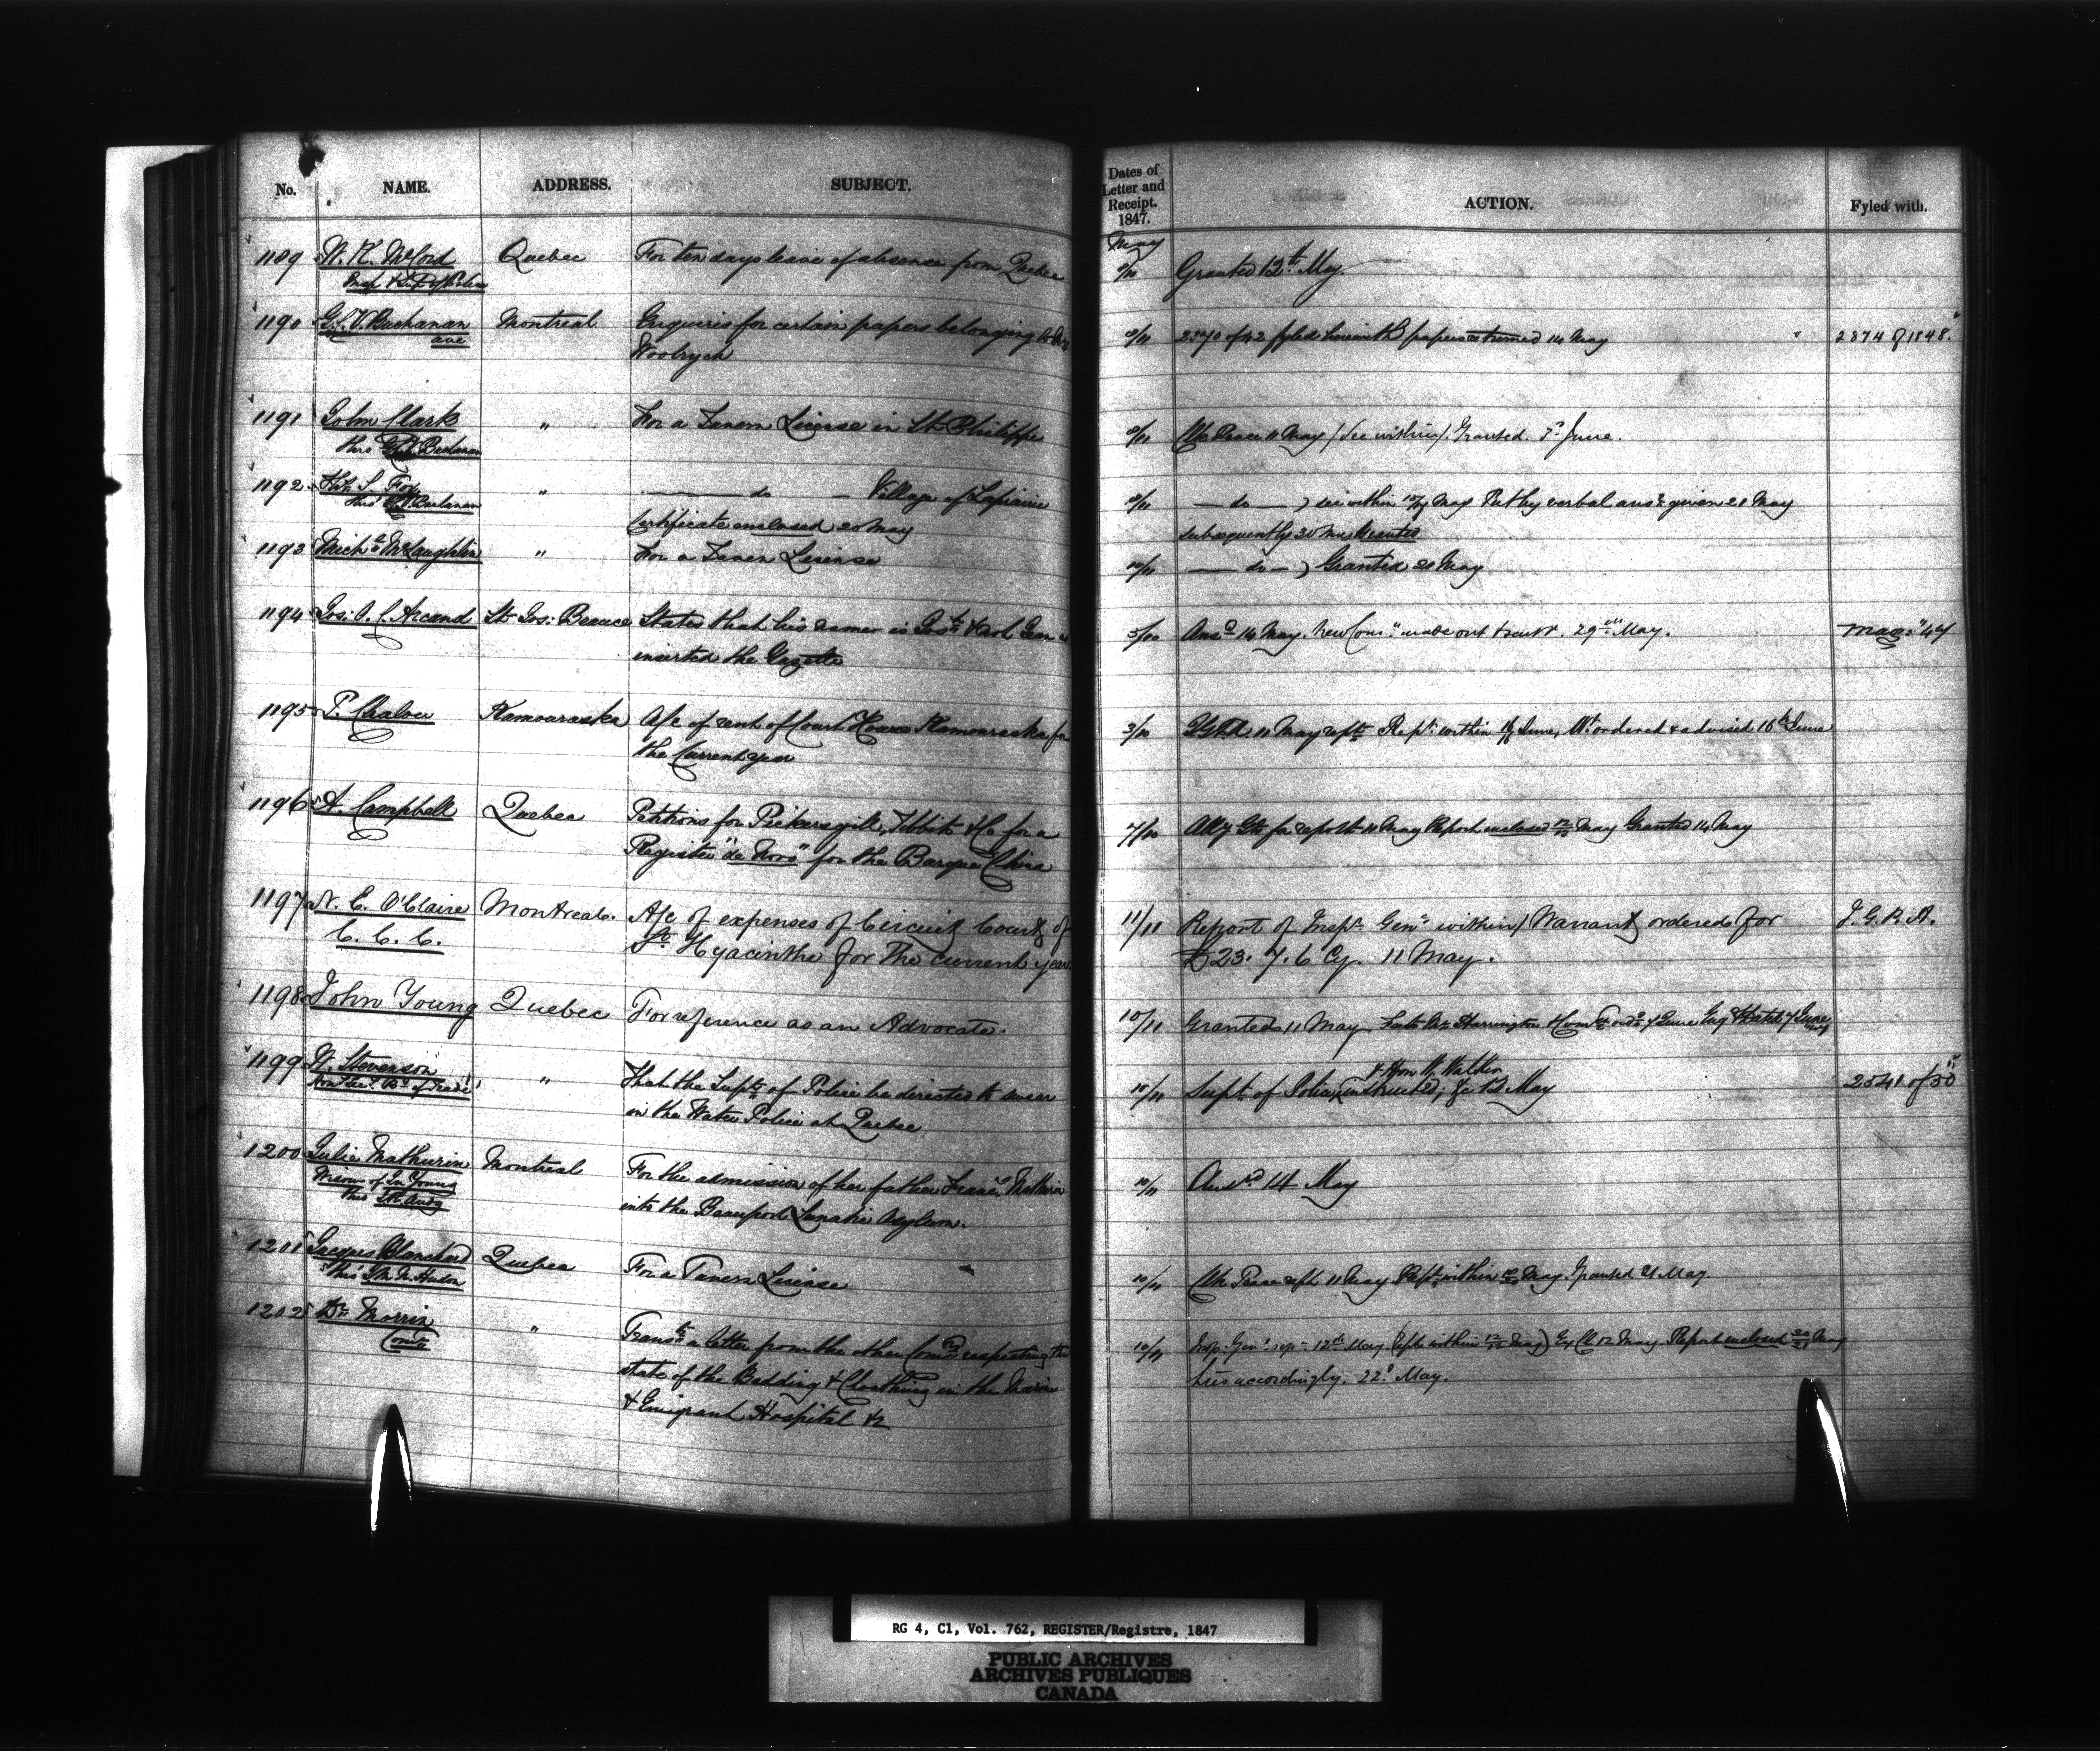 No. NAME. ADDRESS. SUBJECT.
Dates of Letter and Receipt. 1847. ACTION. Fyled with.
May
1189 W. K. McCord Quebec For ten days leave of absence from Quebec 8/10 Granted 12th May.
1190 G. V. Buchanan Montreal Enquiries for certain papers belonging to
ave
Woolrych
8/11 2370 of 42 fyled herewith papers returned 14 May 2874 of 1848.
1191 John Clark " For a Tavern License in St. Philippe
thro' Buchanan
8/11 Clk Peace 11 May / See within / Granted. 3d June.
1192 Fox " — do — Village of Laprairie
thro' G. V. Buchanan
Certificate enclosed 20 May
— do — ) see within May verbal ansr given 21 May
subsequently Granted
1193 Michl McLaughlin " For a Tavern License
10/11 — do — ) Granted 21 May
1194 Jos: O. C. Arcand St. Jos: Beauce States that his name is Josh
inserted the Gazette
5/10 Ansd 14 May. New Comn made out & sent. 29th May.
1195 P. Chalou Kamouraska A/c of rent of Court House Kamouraska for
the Current year
3/10 11 May Rept within June, Wt ordered & advised 16th June
1196 A. Campbell Quebec Petitions for Pickersgill, Tibbits & Co for a
Register "de Novo" for the Barque China
7/10 Atty Gl for report 11 May Report enclosed May Granted 14 May
1197 N. E. O'Claire Montreal. A/c of expenses of Circuit Court of
C. C. C.
St. Hyacinthe for The current year
11/11 Report of Inspr Genl within / Warrant ordered for J. G. R. A.
£23. 7. 6 Cy. 11 May.
1198 John Young Quebec For reference as an Advocate.
10/11 Granted 11 May Harrington
1199 W. Stevenson " That the Supt of Police be directed to swear
Hony Secy Bd of Trade
in the Water Police at Quebec
& Hon W. Walker
10/11 Supt of Police instructed, &c 12 May 2541 of 50
1200 Julie Mathurin Montreal For the admission of her father Mathurin
Widow of Young
thro'
into the Beauport Lunatic Asylum.
10/11 Answd 14 May
1201 Jacques Blanchard Quebec For a Tavern License
thro' Hudon
10/11 Clk Peace 11 May Rept within May Granted 21 May.
1202 Dr Morrin " Transts a letter from the other Comrs respecting the
Comr
state of the Bedding & Clothing in the Marine
& Emigrant Hospital &c
10/11 Insp. Genl rep 12th May (Rept within May) Ex C 12 May. Report enclosed May
accordingly. 22d May.
RG 4, C1, Vol. 762, REGISTER/Registre, 1847
PUBLIC ARCHIVES
ARCHIVES PUBLIQUES
CANADA